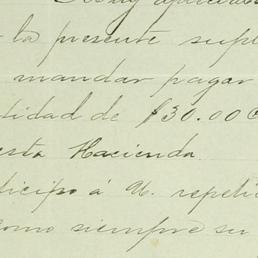 la presente supl
mandar pagar
tidad de $30.00
esta Hacienda.
ticipo á U. repeti
como siempre su